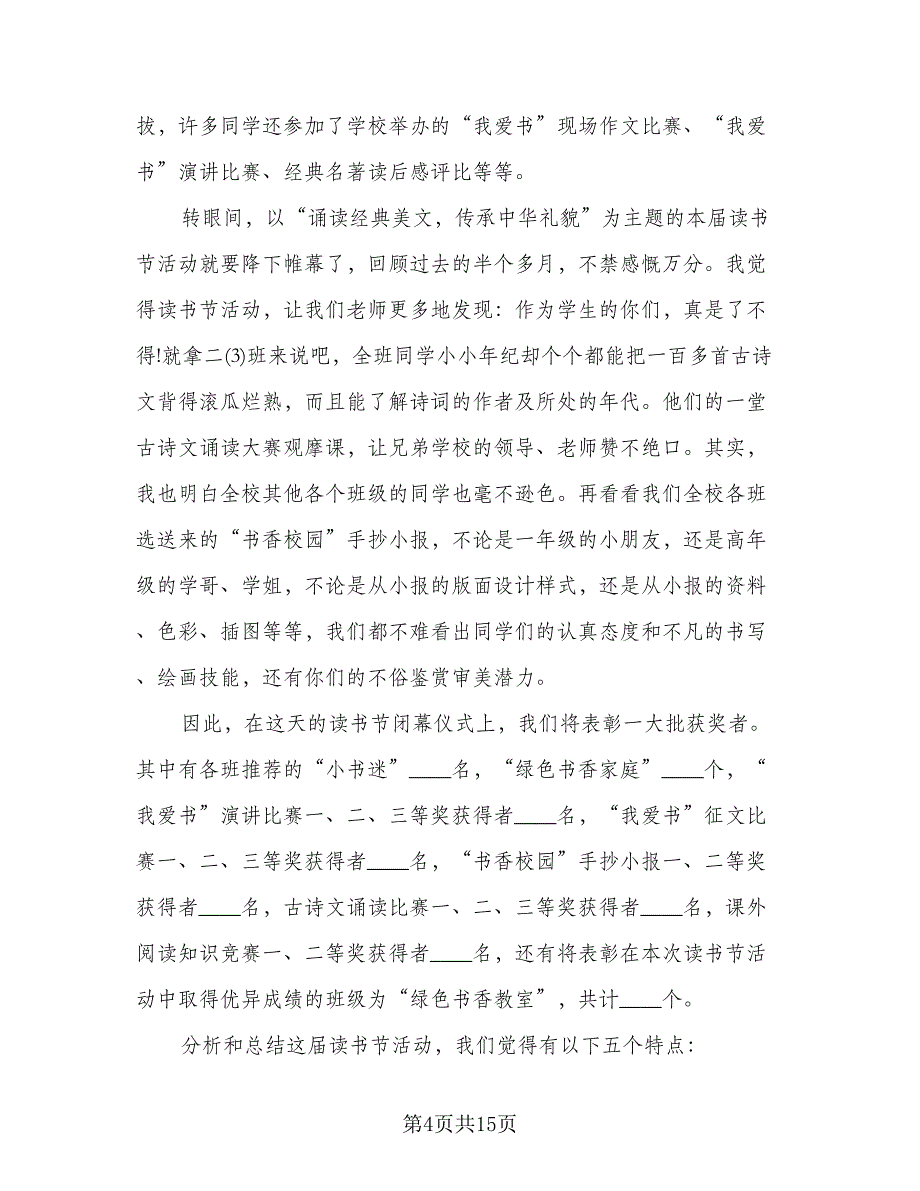 拔，许多同学还参加了学校举办的“我爱书”现场作文比赛、“我爱
书”演讲比赛、经典名著读后感评比等等。
转眼间，以“诵读经典美文，传承中华礼貌”为主题的本届读书
节活动就要降下帷幕了，回顾过去的半个多月，不禁感慨万分。我觉
得读书节活动，让我们老师更多地发现：作为学生的你们，真是了不
得!就拿二(3)班来说吧，全班同学小小年纪却个个都能把一百多首古诗
文背得滚瓜烂熟，而且能了解诗词的作者及所处的年代。他们的一堂
古诗文诵读大赛观摩课，让兄弟学校的领导、老师赞不绝口。其实，
我也明白全校其他各个班级的同学也毫不逊色。再看看我们全校各班
选送来的“书香校园”手抄小报，不论是一年级的小朋友，还是高年
级的学哥、学姐，不论是从小报的版面设计样式，还是从小报的资料
、色彩、插图等等，我们都不难看出同学们的认真态度和不凡的书写
、绘画技能，还有你们的不俗鉴赏审美潜力。
因此，在这天的读书节闭幕仪式上，我们将表彰一大批获奖者。
其中有各班推荐的“小书迷”____名，“绿色书香家庭”____个，“
我爱书”演讲比赛一、二、三等奖获得者____名，“我爱书”征文比
赛一、二、三等奖获得者____名，“书香校园”手抄小报一、二等奖
获得者____名，古诗文诵读比赛一、二、三等奖获得者____名，课外
阅读知识竞赛一、二等奖获得者____名，还有将表彰在本次读书节活
动中取得优异成绩的班级为“绿色书香教室”，共计____个。
分析和总结这届读书节活动，我们觉得有以下五个特点：
第4页共15页